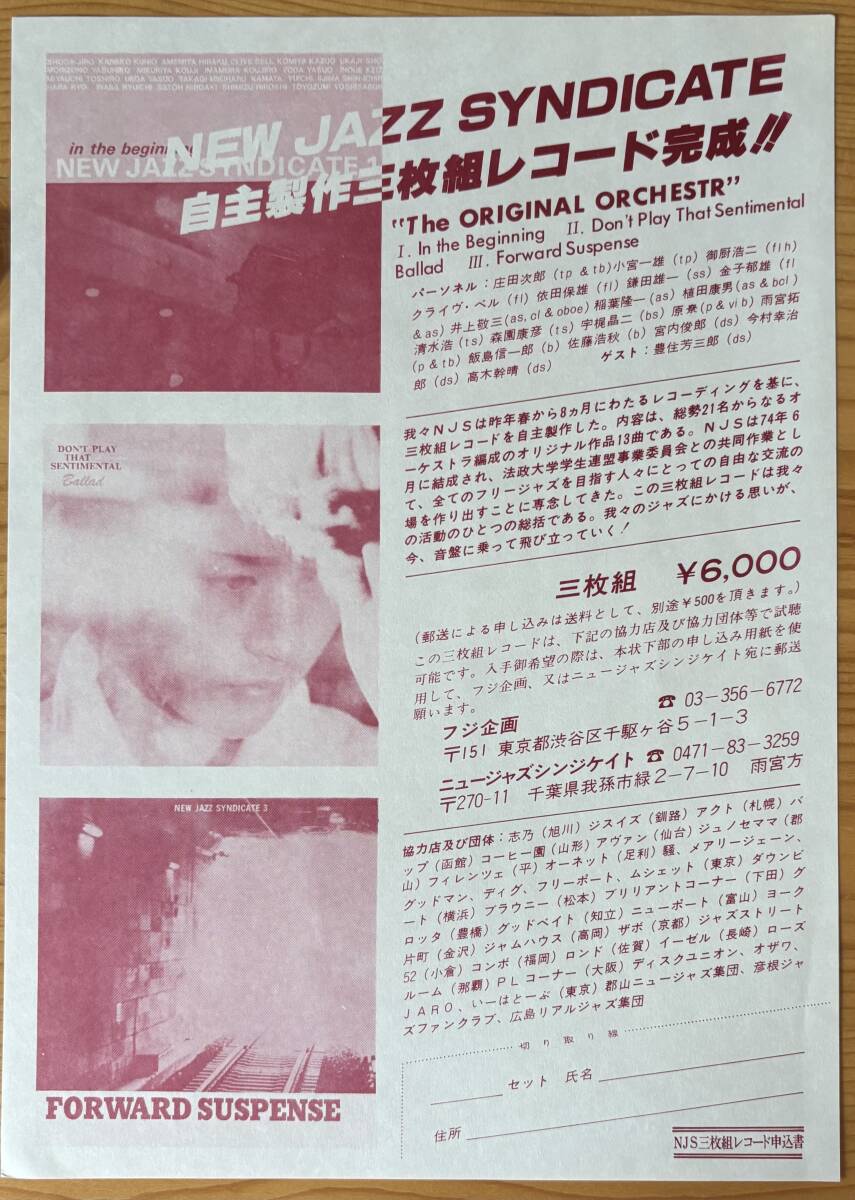 SHODA JIRO KANEKO KUNIO AMEMIYA HIRAKU CLIVE BELL KOMIYA KAZUO UKAJI SHO
MORIZONO YASUHIRO MIKURIYA KOUJI IMAMURA KOUJIRO YODA YASUO INOUE KEIZ
MIYAUCHI TOSHIRO UEDA YASUO TAKAGI MICHIHARU KAMATA YUICHI IIJIMA SHIN-ICHIR
HARA RYO INABA RYUICHI SATOH HIROAKI SHIMIZU HIROSHI TOYOZUMI YOSHISABUR
in the beginning
NEW JAZZ SYNDICATE 1
NEW JAZZ SYNDICATE
自主製作三枚組レコード完成!!
"The ORIGINAL ORCHESTR"
I. In the Beginning II. Don't Play That Sentimental
Ballad III. Forward Suspense
パーソネル:庄田次郎(tp & tb)小宮一雄(tp)御厨浩二(flh)
クライヴ・ベル(fl)依田保雄(fl)鎌田雄一(ss)金子郁雄(fl
& as)井上敬三(as, cl & oboe)稲葉隆一(as)植田康男(as & bcl)
清水浩(ts)森園康彦(ts)宇梶晶二(bs)原尞(p & vib)雨宮拓
(p & tb)飯島信一郎(b)佐藤浩秋(b)宮内俊郎(ds)今村幸治
郎(ds)高木幹晴(ds) ゲスト:豊住芳三郎(ds)
我々NJSは昨年春から8ヵ月にわたるレコーディングを基に、
三枚組レコードを自主製作した。内容は、総勢21名からなるオ
ーケストラ編成のオリジナル作品13曲である。NJSは74年6
月に結成され、法政大学学生連盟事業委員会との共同作業とし
て、全てのフリージャズを目指す人々にとっての自由な交流の
場を作り出すことに専念してきた。この三枚組レコードは我々
の活動のひとつの総括である。我々のジャズにかける思いが、
今、音盤に乗って飛び立っていく!
三枚組 ¥6,000
(郵送による申し込みは送料として、別途¥500を頂きます。)
この三枚組レコードは、下記の協力店及び協力団体等で試聴
可能です。入手御希望の際は、本状下部の申し込み用紙を使
用して、フジ企画、又はニュージャズシンジケイト宛に郵送
願います。
フジ企画 ☎ 03-356-6772
〒151 東京都渋谷区千駆ヶ谷5-1-3
ニュージャズシンジケイト ☎ 0471-83-3259
〒270-11 千葉県我孫市緑2-7-10 雨宮方
協力店及び団体:志乃(旭川)ジスイズ(釧路)アクト(札幌)バ
ップ(函館)コーヒー園(山形)アヴァン(仙台)ジュノセママ(郡
山)フィレンツェ(平)オーネット(足利)騒、メアリージェーン、
グッドマン、ディグ、フリーポート、ムシェット(東京)ダウンビ
ート(横浜)ブラウニー(松本)ブリリアントコーナー(下田)グ
ロッタ(豊橋)グッドベイト(知立)ニューポート(富山)ヨーク
片町(金沢)ジャムハウス(高岡)ザボ(京都)ジャズストリート
52(小倉)コンボ(福岡)ロンド(佐賀)イーゼル(長崎)ローズ
ルーム(那覇)PLコーナー(大阪)ディスクユニオン、オザワ、
JARO、いーはとーぶ(東京)郡山ニュージャズ集団、彦根ジャ
ズファンクラブ、広島リアルジャズ集団
切り取り線
セット 氏名
住所
NJS三枚組レコード申込書
DON'T PLAY
THAT
SENTIMENTAL
Ballad
NEW JAZZ SYNDICATE 3
FORWARD SUSPENSE